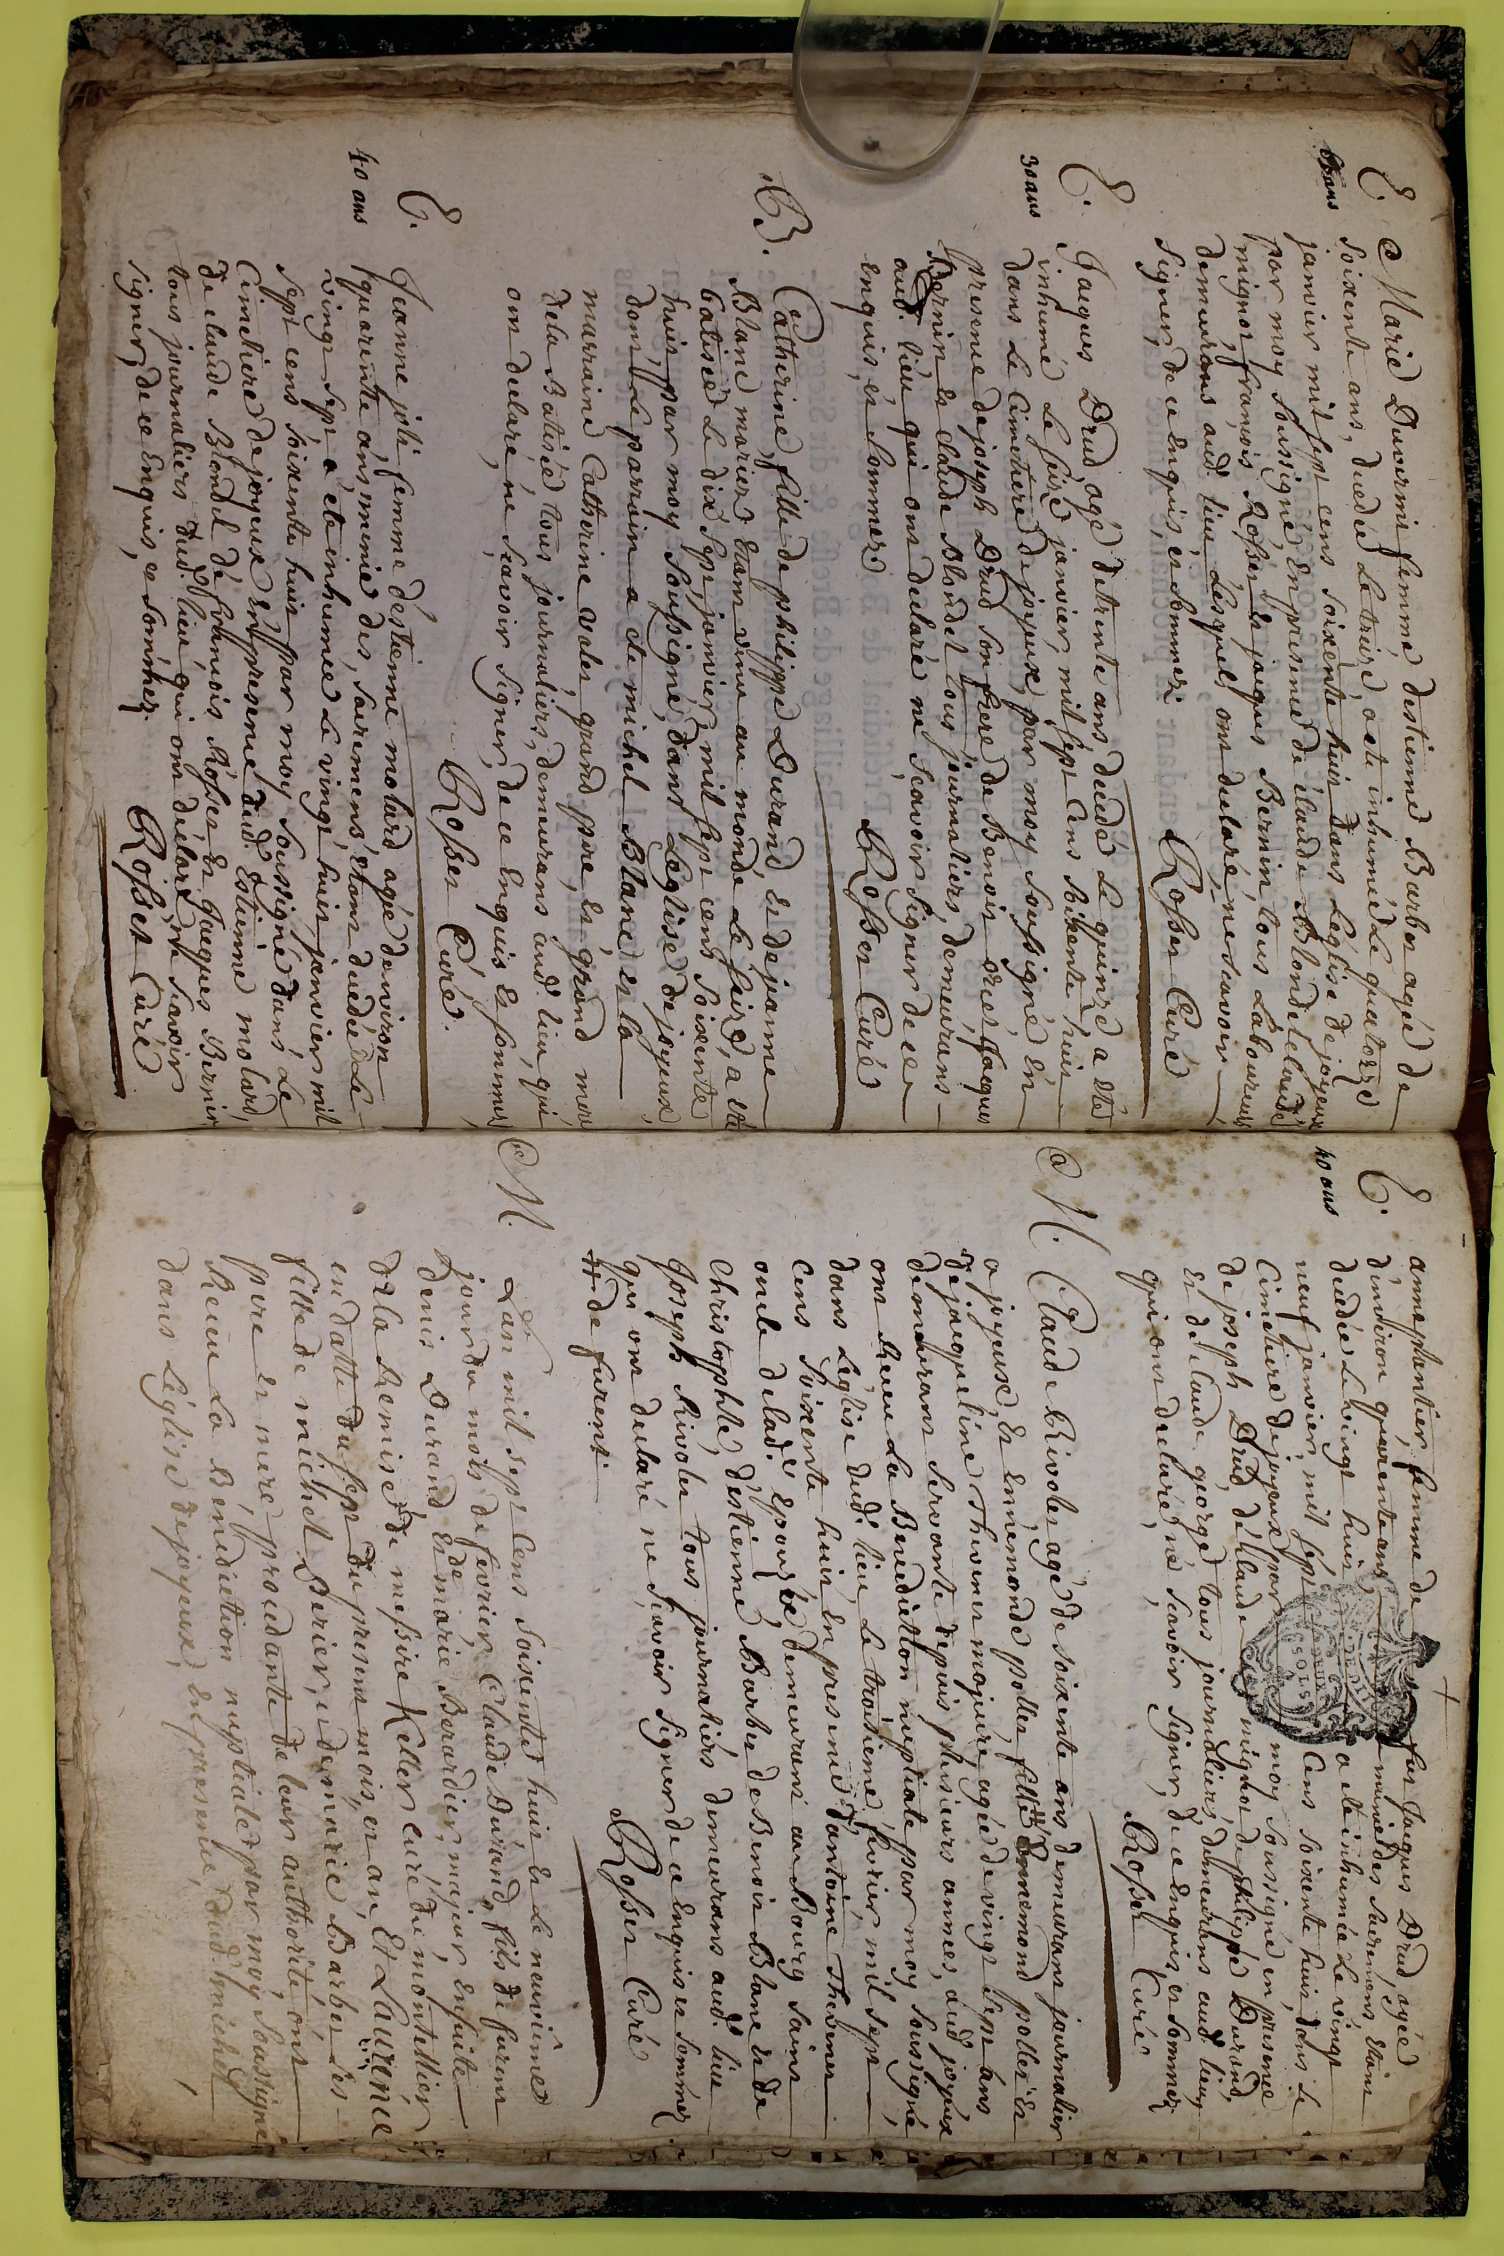 E.
60 ans
Marie Duvermi femme d'estienne Barbes agée de
soixente ans, decedée le treize, a eté inhumée le quatorze
janvier mil sept cens soixente huit dans l'eglise de joyeux
par moy soussigné, en presence de claude Blondel et claude
mignot, françois Rosset et jaques Bernin tous Laboureurs
demeurans aud. lieu, lésquels ont declaré ne scavoir
signer, de ce enquis, et sommez.
Rosset Curé
E.
30 ans
Jaques Drud agé de trente ans decedé le quinze a eté
inhumé le seize janvier, mil sept cens soixente huit
dans le cimetiere de joyeux, par moy soussigné en
presence de joseph Drud son frere de Benoit Drevet, Jaques
Bernin et claude Blondel tous journaliers, demeurans
aud. lieu qui ont declaré ne scavoir signer de ce
enquis, et sommez
Rosset Curé
B.
Catherine, fille de philippe Durand, et de jeanne
Blanc mariez etant venue au monde le seize, a eté
batisée le dix sept janvier mil sept cens soixente
huit par moy soussigné, dans l'eglise de joyeux,
dont le parrain a eté michel Blanc et la
marraine Catherine valet, grand pere, et grand mere
de la Batisée, tous journaliers, demeurans aud. lieu qui
ont declaré, ne scavoir signer, de ce enquis et sommez
Rosset Curé.
E.
40 ans
Jeanne joli femme d'éstienne molard, agée d'environ
quarente ans, munie des sacremens, etant decedée le
vingt sept a eté inhumée le vingt huit janvier mil
sept cens soixente huit par moy soussigné dans le
Cimetiere de joyeux en presence dud. Estienne molard,
de claude Blondel de françois Rosset et Jacques Bernin
tous journaliers dud. lieu qui ont declaré ne scavoir
signer, de ce enquis, et sommez.
Rosset Curé
E.
40 ans
anne plantier, femme de feu Jaques Drud, agée
d'environ quarente ans, munie des sacremens etant
decedée le vingt huit, a eté inhumée le vingt
neuf janvier, mil sept cens soixente huit dans le
Cimetiere de joyeux par moy soussigné, en presence
de joseph Drud, de Claude mignot de philippe Durand,
et de claude george tous journaliers, demeurans aud. lieu,
qui ont declaré né scavoir signer, de ce enquis, et sommez
Rosset Curé
M.
Claude Rivolet agé de soixente ans demeurant journalier
a joyeux, et Ennemonde pollet fille ## Ennemond pollet et
de jacqueline Thevenet majeure, agée de vingt sept ans
demeurant servante depuis plusieurs années, aud. joyeux
ont Receu la Benediction nuptiale par moy soussigné,
dans l'eglise dud. lieu le troisieme fevrier, mil sept
cens soixente huit, en presence d'antoine Thevenet
oncle de lad. epousée demeurant au Bourg saint
christophle, d'estienne Barbes de Benoit Blanc et de
Joseph Rivolet tous journaliers demeurans aud. lieu
qui ont declaré ne scavoir signer de ce enquis et sommez.
## de furent
Rosset Curé
M.
L'an mil sept cens soixente huit et le neuvieme
jour du mois de fevrier, Claude Durand, fils de furent
denis Durand et de marie Berardier, majeur ensuite
de la Remise de messire Keller curé de montellier
en datte du sept du present mois, et an, Et Laurence
fille de michel Perrier, et de marie Barbet ses
pere et mere, procedante de leur authorité, ont
Receu la Benediction nuptiale par moy soussigné
dans l'église de joyeux, en presence, dud. michel